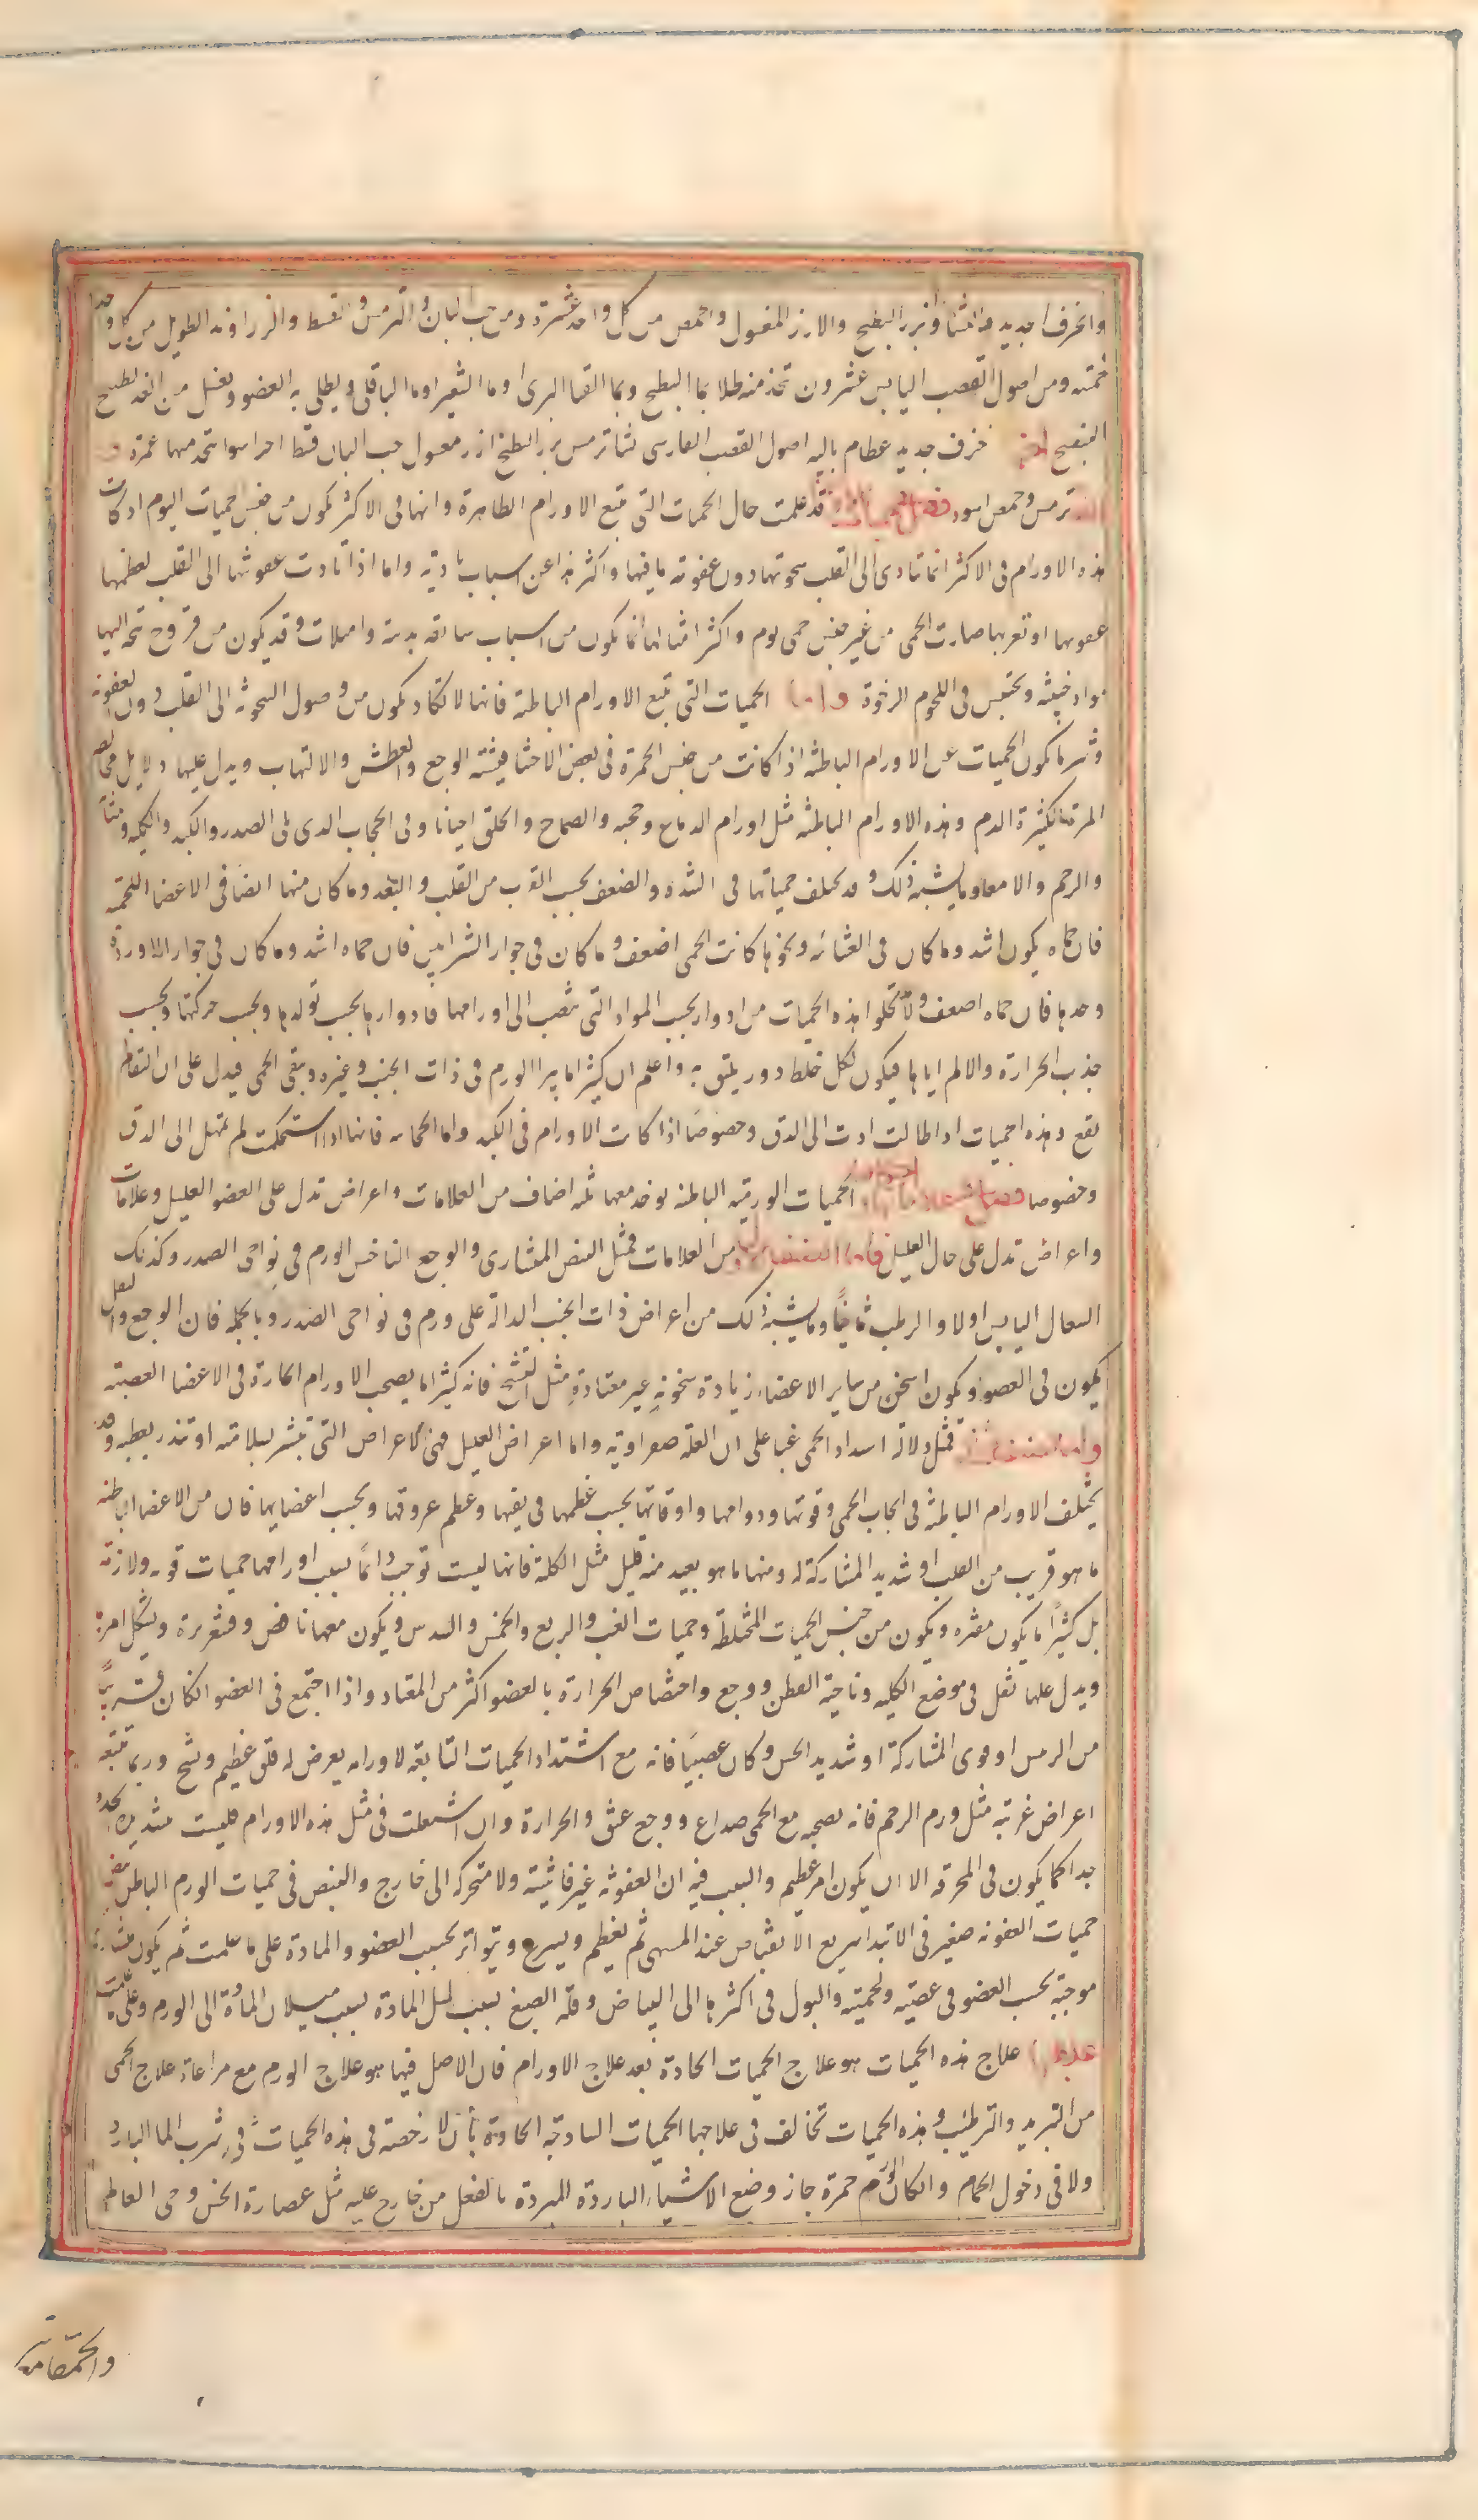 والخزف الجديد والنشا وبزر البطيخ والارز المغسول والحمص من كل واحد عشرة ومن حب البان والترمس والقسط والزراوند الطويل من كل واحد
خمسة ومن اصول القصب اليابس عشرون تتخذ منه طلا بما البطيخ وبما القثا البرى او ما الشعير او ما الباقلى ويطلى به العضو ويغسل من الغد بطبيخ
البنفسج اخر خزف جديد عظام باليه اصول القصب الفارسى نشا ترمس بزر البطيخ ارز مغسول حب البان قسط اجزا سوا تتخذ منها غمرة
ترمس وحمص اسود فصل قد علمت حال الحميات التى تتبع الاورام الظاهرة وانها فى الاكثر تكون من جنس حميات اليوم اذ كانت
هذه الاورام فى الاكثر انما تتادى الى القلب سخونتها دون عفونة ما فيها واكثر هذا عن اسباب بادية واما اذا تادت عفونتها الى القلب لعظمها
او لقربها صارت الحمى من غير جنس حمى يوم واكثر امثالها انما يكون من اسباب سابقة بدنية وامتلات وقد يكون من قروح تتحه اليها
مواد خبيثة وتحتبس فى اللحوم الرخوة واما الحميات التى تتبع الاورام الباطنة فانها لا تكاد تكون من وصول السخونة الى القلب دون العفونة
وشر ما تكون الحميات عن الاورام الباطنة اذا كانت من جنس الحمرة فى بعض الاحشا فيشتد الوجع والعطش والالتهاب ويدل عليها دلايل مخالطة
المرة الكثيرة الدم وهذه الاورام الباطنة مثل اورام الدماغ وحجبه والصماخ والحلق احيانا وفى الحجاب الذى يلى الصدر والكبد والكلية والمثانة
والرحم والامعا وما يشبه ذلك وقد تختلف حمياتها فى الشدة والضعف بحسب القرب من القلب والبعد وما كان منها ايضا فى الاعضا اللحمية
فان حماه يكون اشد وما كان فى الغشائية ونحوها كانت الحمى اضعف وما كان فى جوار الشرايين فان حماه اشد وما كان فى جوار الاوردة
وحدها فان حماه اضعف ولا تخلوا هذه الحميات من ادوار بحسب المواد التى تنصب الى اورامها فادوارها بحسب تولدها وبحسب حركتها وبحسب
جذب الحرارة والالم اياها فيكون لكل خلط دور يليق به واعلم ان كثيرا ما يبرا الورم فى ذات الجنب وغيره وتبقى الحمى فيدل على ان النقا لم
يقع وهذه الحميات اذا طالت ادت الى الدق وخصوصا اذا كانت الاورام فى الكبد واما الحجابية فانها اذا استحكمت لم تمهل الى الدق
وخصوصا فصل علاماتها الحميات الورمية الباطنة يوخذ معها ثلثة اصناف من العلامات واعراض تدل على العضو العليل وعلامات
واعراض تدل على حال العليل فاما الصنف الاول من العلامات فمثل النبض المنشارى والوجع الناخس لورم فى نواحى الصدر وكذلك
السعال اليابس اولا والرطب ثانيا وما يشبه ذلك من اعراض ذات الجنب الدالة على ورم فى نواحى الصدر وبالجملة فان الوجع والثقل
يكون فى العضو ويكون اسخن من ساير الاعضاء زيادة سخونة غير معتادة مثل التشنج فانه كثيرا ما يصحب الاورام الحارة فى الاعضا العصبية
فمثل دلالة اشتداد الحمى غبا على ان العلة صفراوية واما اعراض العليل فهى كالاعراض التى تبشر بسلامته او تنذر بعطبه وقد
يختلف الاورام الباطنة فى ايجاب الحمى وقوتها ودوامها واوقاتها بحسب عظمها فى نفسها وعظم عروقها وبحسب اعضايها فان من الاعضا الباطنة
ما هو قريب من القلب او شديد المشاركة له ومنها ما هو بعيد منه قليل مثل الكلية فانها ليست توجب دائما بسبب اورامها حميات قوية ولازمة
بل كثيرا ما يكون مفترة ويكون من جنس الحميات المختلطة وحميات الغب والربع والخمس والسدس ويكون معها نافض وقشعريرة ويشكل امرها
ويدل عليها ثقل فى موضع الكلية وناحية القطن ووجع واختصاص الحرارة بالعضو اكثر من المعتاد واذا اجتمع فى العضو ان كان قريبا
من الراس او قوى المشاركة او شديد الحس وكان عصبيا فانه مع اشتداد الحميات التابعة لاورامه يعرض له قلق عظيم وتشنج وربما تبعته
اعراض غريبة مثل ورم الرحم فانه يصحبه مع الحمى صداع ووجع عنق والحرارة وان اشتعلت فى مثل هذه الاورام فليست بشديدة الحدة
جدا كما يكون فى المحرقة الا ان يكون امر عظيم والسبب فيه ان العفونة غير فاشية ولا متحركة الى خارج والنبض فى حميات الورم الباطن
حميات العفونة صغير فى الابتدا سريع الانقباض عند المنتهى ثم يعظم ويسرع ويتواتر بحسب العضو والمادة على ما علمت ثم يكون منشارية
موجية بحسب العضو فى عصبيته ولحميته والبول فى اكثرها الى البياض وقلة الصبغ بسبب ميل المادة بسبب سيلان المادة الى الورم وعلى ما علمت
علاجها علاج هذه الحميات هو علاج الحميات الحادة بعد علاج الاورام فان الاصل فيها هو علاج الورم مع مراعاة علاج الحمى
من التبريد والترطيب وهذه الحميات تخالف فى علاجها الحميات الساذجة الحادة بان لا رخصة فى هذه الحميات فى شرب الما البارد
ولا فى دخول الحمام وان كان الورم حمرة جاز وضع الاشياء الباردة المبردة بالفعل من خارج عليه مثل عصارة الخس وحى العالم